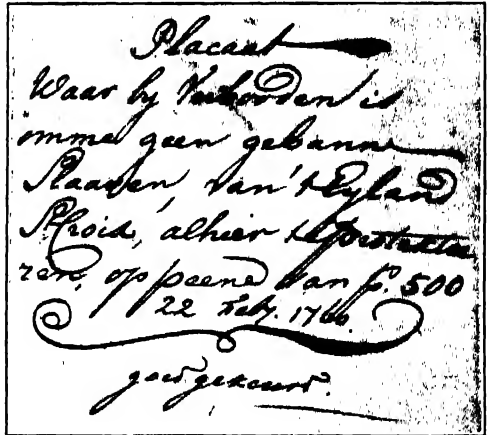 Placaat
Waar by Verborden is
omme geen gebanne
Slaaven, van 't Eyland
St Croix, alhier te protextee
ren, op peene van p. 500
22 Feby. 1760.
goed gekeurd.